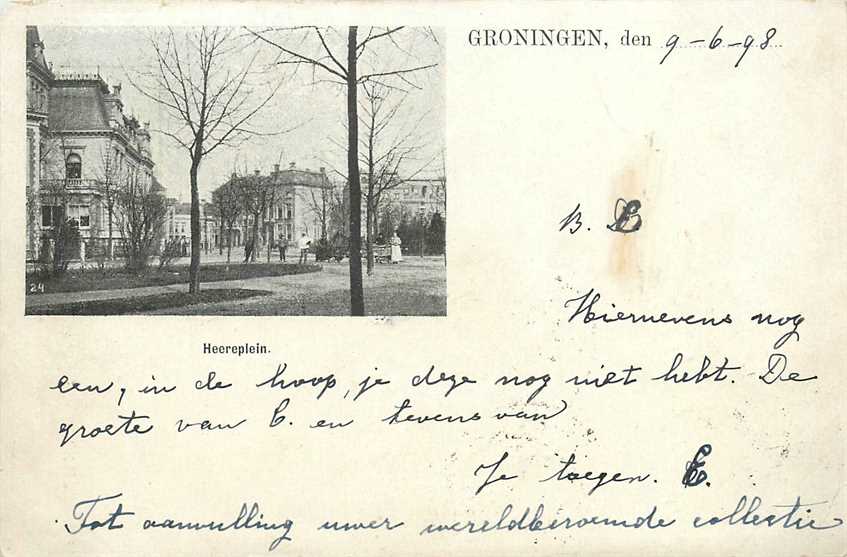 GRONINGEN, den 9-6-98
24
B.
Heereplein.
Hiernevens nog
een, in de hoop, je deze nog niet hebt. De
groete van C. en tevens van
Je toegen. E.
Tot aanvulling uwer wereldberoemde collectie